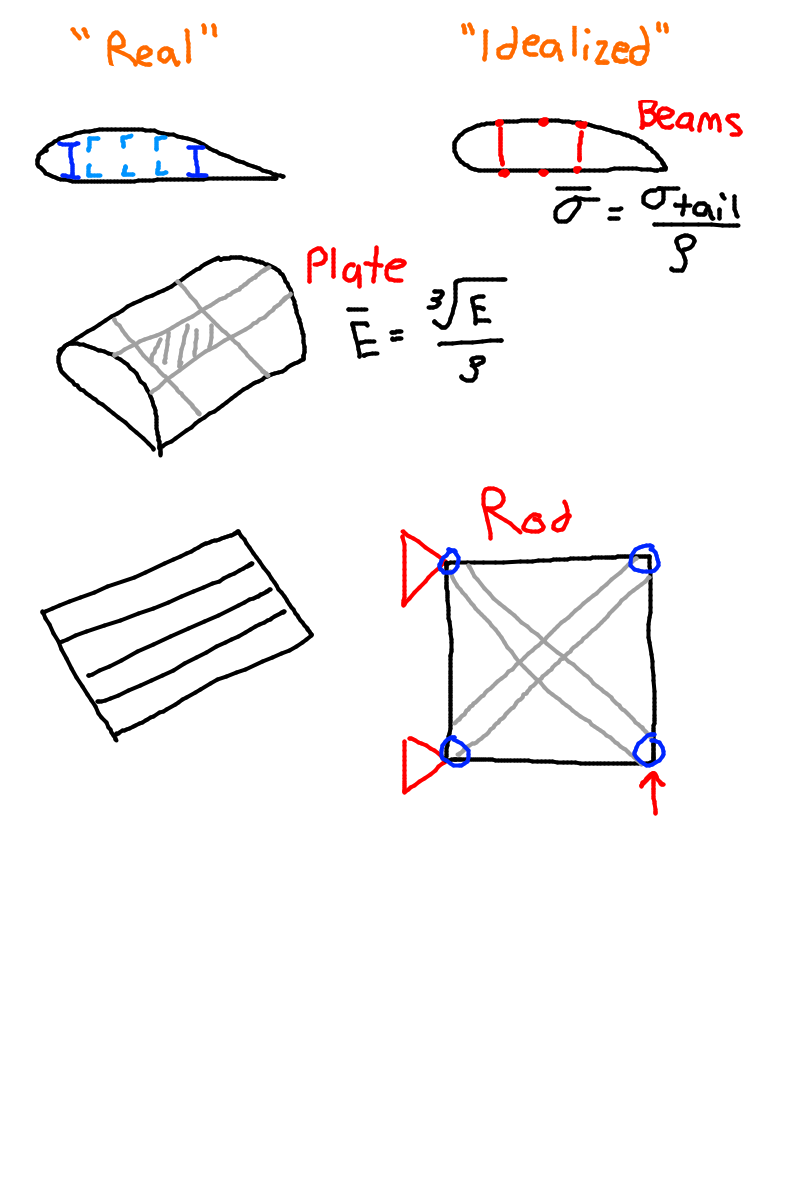 "Real"
"Idealized"
Beams
σ̅ = σtail / ρ
Plate
E̅ = ∛E / ρ
Rod